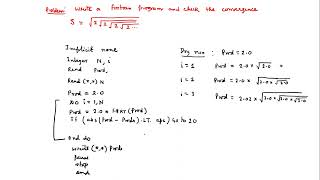 Problem: Write a Fortran program and check the convergence
S = √2√2√2√2...
Implicit none
Integer N, i
Real Prod,
Read (*,*) N
Prod = 2.0
Do i = 1, N
Prod = 2.0 * SQRT(Prod)
If (abs(Prod - Prodo) .LT. eps) Go to 20
end do
write (*,*) Prod
stop
end
Dry run : Prod = 2.0
i = 1 Prod = 2.0 × √2.0
i = 2 Prod = 2.0 × √2.0 × √2.0
i = 3 Prod = 2.0 × √2.0 × √2.0 × √2.0